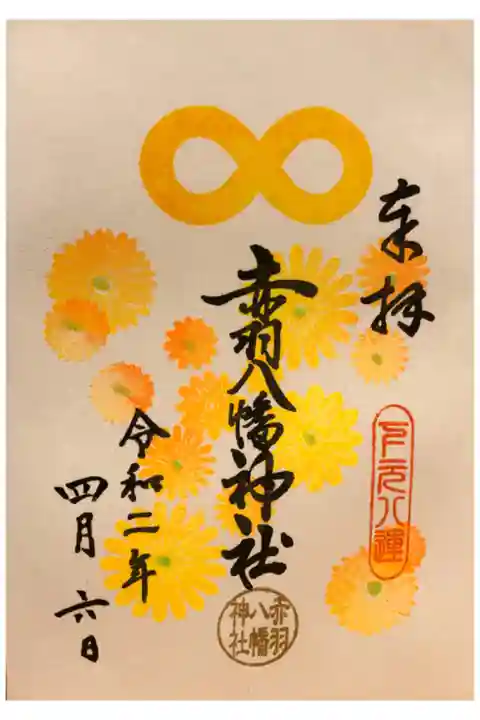 奉拝
開元八運
赤羽八幡神社
赤羽
八幡
神社
令和二年
四月六日